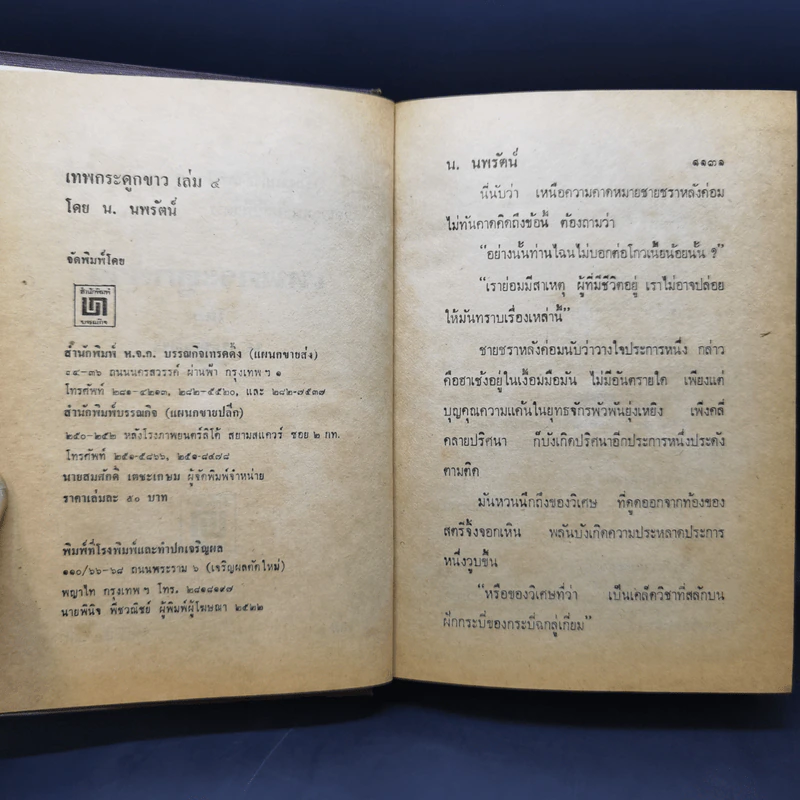 เทพกระดูกขาว เล่ม ๔
โดย น. นพรัตน์
จัดพิมพ์โดย
สำนักพิมพ์
บรรณกิจ
สำนักพิมพ์ ห.จ.ก. บรรณกิจเทรดดิ้ง (แผนกขายส่ง)
๓๔–๓๖ ถนนนครสวรรค์ ผ่านฟ้า กรุงเทพฯ ๑
โทรศัพท์ ๒๘๑–๔๒๑๓, ๒๘๒–๕๕๒๐, และ ๒๘๒–๗๕๓๗
สำนักพิมพ์บรรณกิจ (แผนกขายปลีก)
๒๕๐–๒๕๒ หลังโรงภาพยนตร์ลิโด้ สยามสแควร์ ซอย ๒ กท.
โทรศัพท์ ๒๕๑–๕๘๖๖, ๒๕๑–๘๔๗๘
นายสมศักดิ์ เตชะเกษม ผู้จัดพิมพ์จำหน่าย
ราคาเล่มละ ๕๐ บาท
พิมพ์ที่โรงพิมพ์และทำปกเจริญผล
๑๑๐/๖๖–๖๘ ถนนพระราม ๖ (เจริญผลตัดใหม่)
พญาไท กรุงเทพฯ โทร. ๒๘๑๘๑๙๗
นายพินิจ พืชวณิชย์ ผู้พิมพ์ผู้โฆษณา ๒๕๒๒
น. นพรัตน์ ๑๑๓๑
นี่นับว่า เหนือความคาดหมายชายชราหลังค่อม
ไม่ทันคาดคิดถึงข้อนี้ ต้องถามว่า
“อย่างนั้นท่านไฉนไม่บอกต่อโกวเนี้ยน้อยนั้น ?”
“เราย่อมมีสาเหตุ ผู้ที่มีชีวิตอยู่ เราไม่อาจปล่อย
ให้มันทราบเรื่องเหล่านี้”
ชายชราหลังค่อมนับว่าวางใจประการหนึ่ง กล่าว
คือฮาเช้งอยู่ในเงื้อมมือมัน ไม่มีอันตรายใด เพียงแต่
บุญคุณความแค้นในยุทธจักรพัวพันยุ่งเหยิง เพิ่งคลี่
คลายปริศนา ก็บังเกิดปริศนาอีกประการหนึ่งประดัง
ตามติด
มันหวนนึกถึงของวิเศษ ที่ดูดออกจากท้องของ
สตรีจิ้งจอกเหิน พลันบังเกิดความประหลาดประการ
หนึ่งวูบขึ้น
“หรือของวิเศษที่ว่า เป็นเคล็ดวิชาที่สลักบน
ฝักกระบี่ของกระบี่ฉกสู่เกี่ยม”